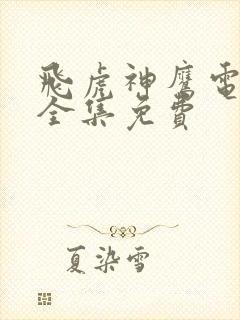 飛虎神鷹電
全集免費
夏染雪